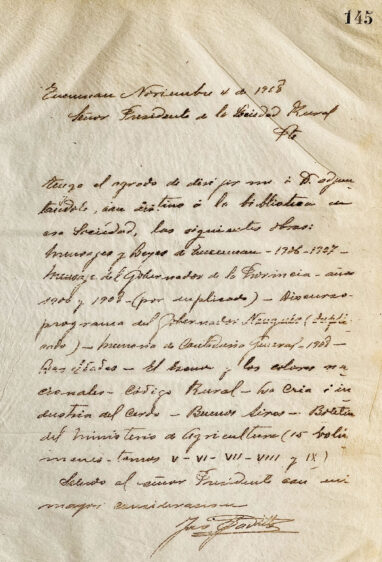 145
Tucuman Noviembre 4 de 1908
Señor Presidente de la Sociedad Rural
Pte
tengo el agrado de dirijirme á V. adjun
tandole, con destino á la biblioteca de
esa Sociedad, las siguientes obras:
Mensages y Leyes de Tucuman - 1906-1907 -
Mensage del Gobernador de la Provincia - años
1906 y 1908 - (por duplicado) - Discurso-
programa del Gobernador Nougués (dupli
cado) - Memoria de Contaduria General - 1908 -
- El Escudo y los colores na
cionales - Código Rural - La Cria é in
dustria del Cerdo - Buenos Aires - Boletin
del Ministerio de Agricultura (15 volú
menes - tomos V - VI - VII - VIII y IX)
Saludo al señor Presidente con mi
mayor consideracion